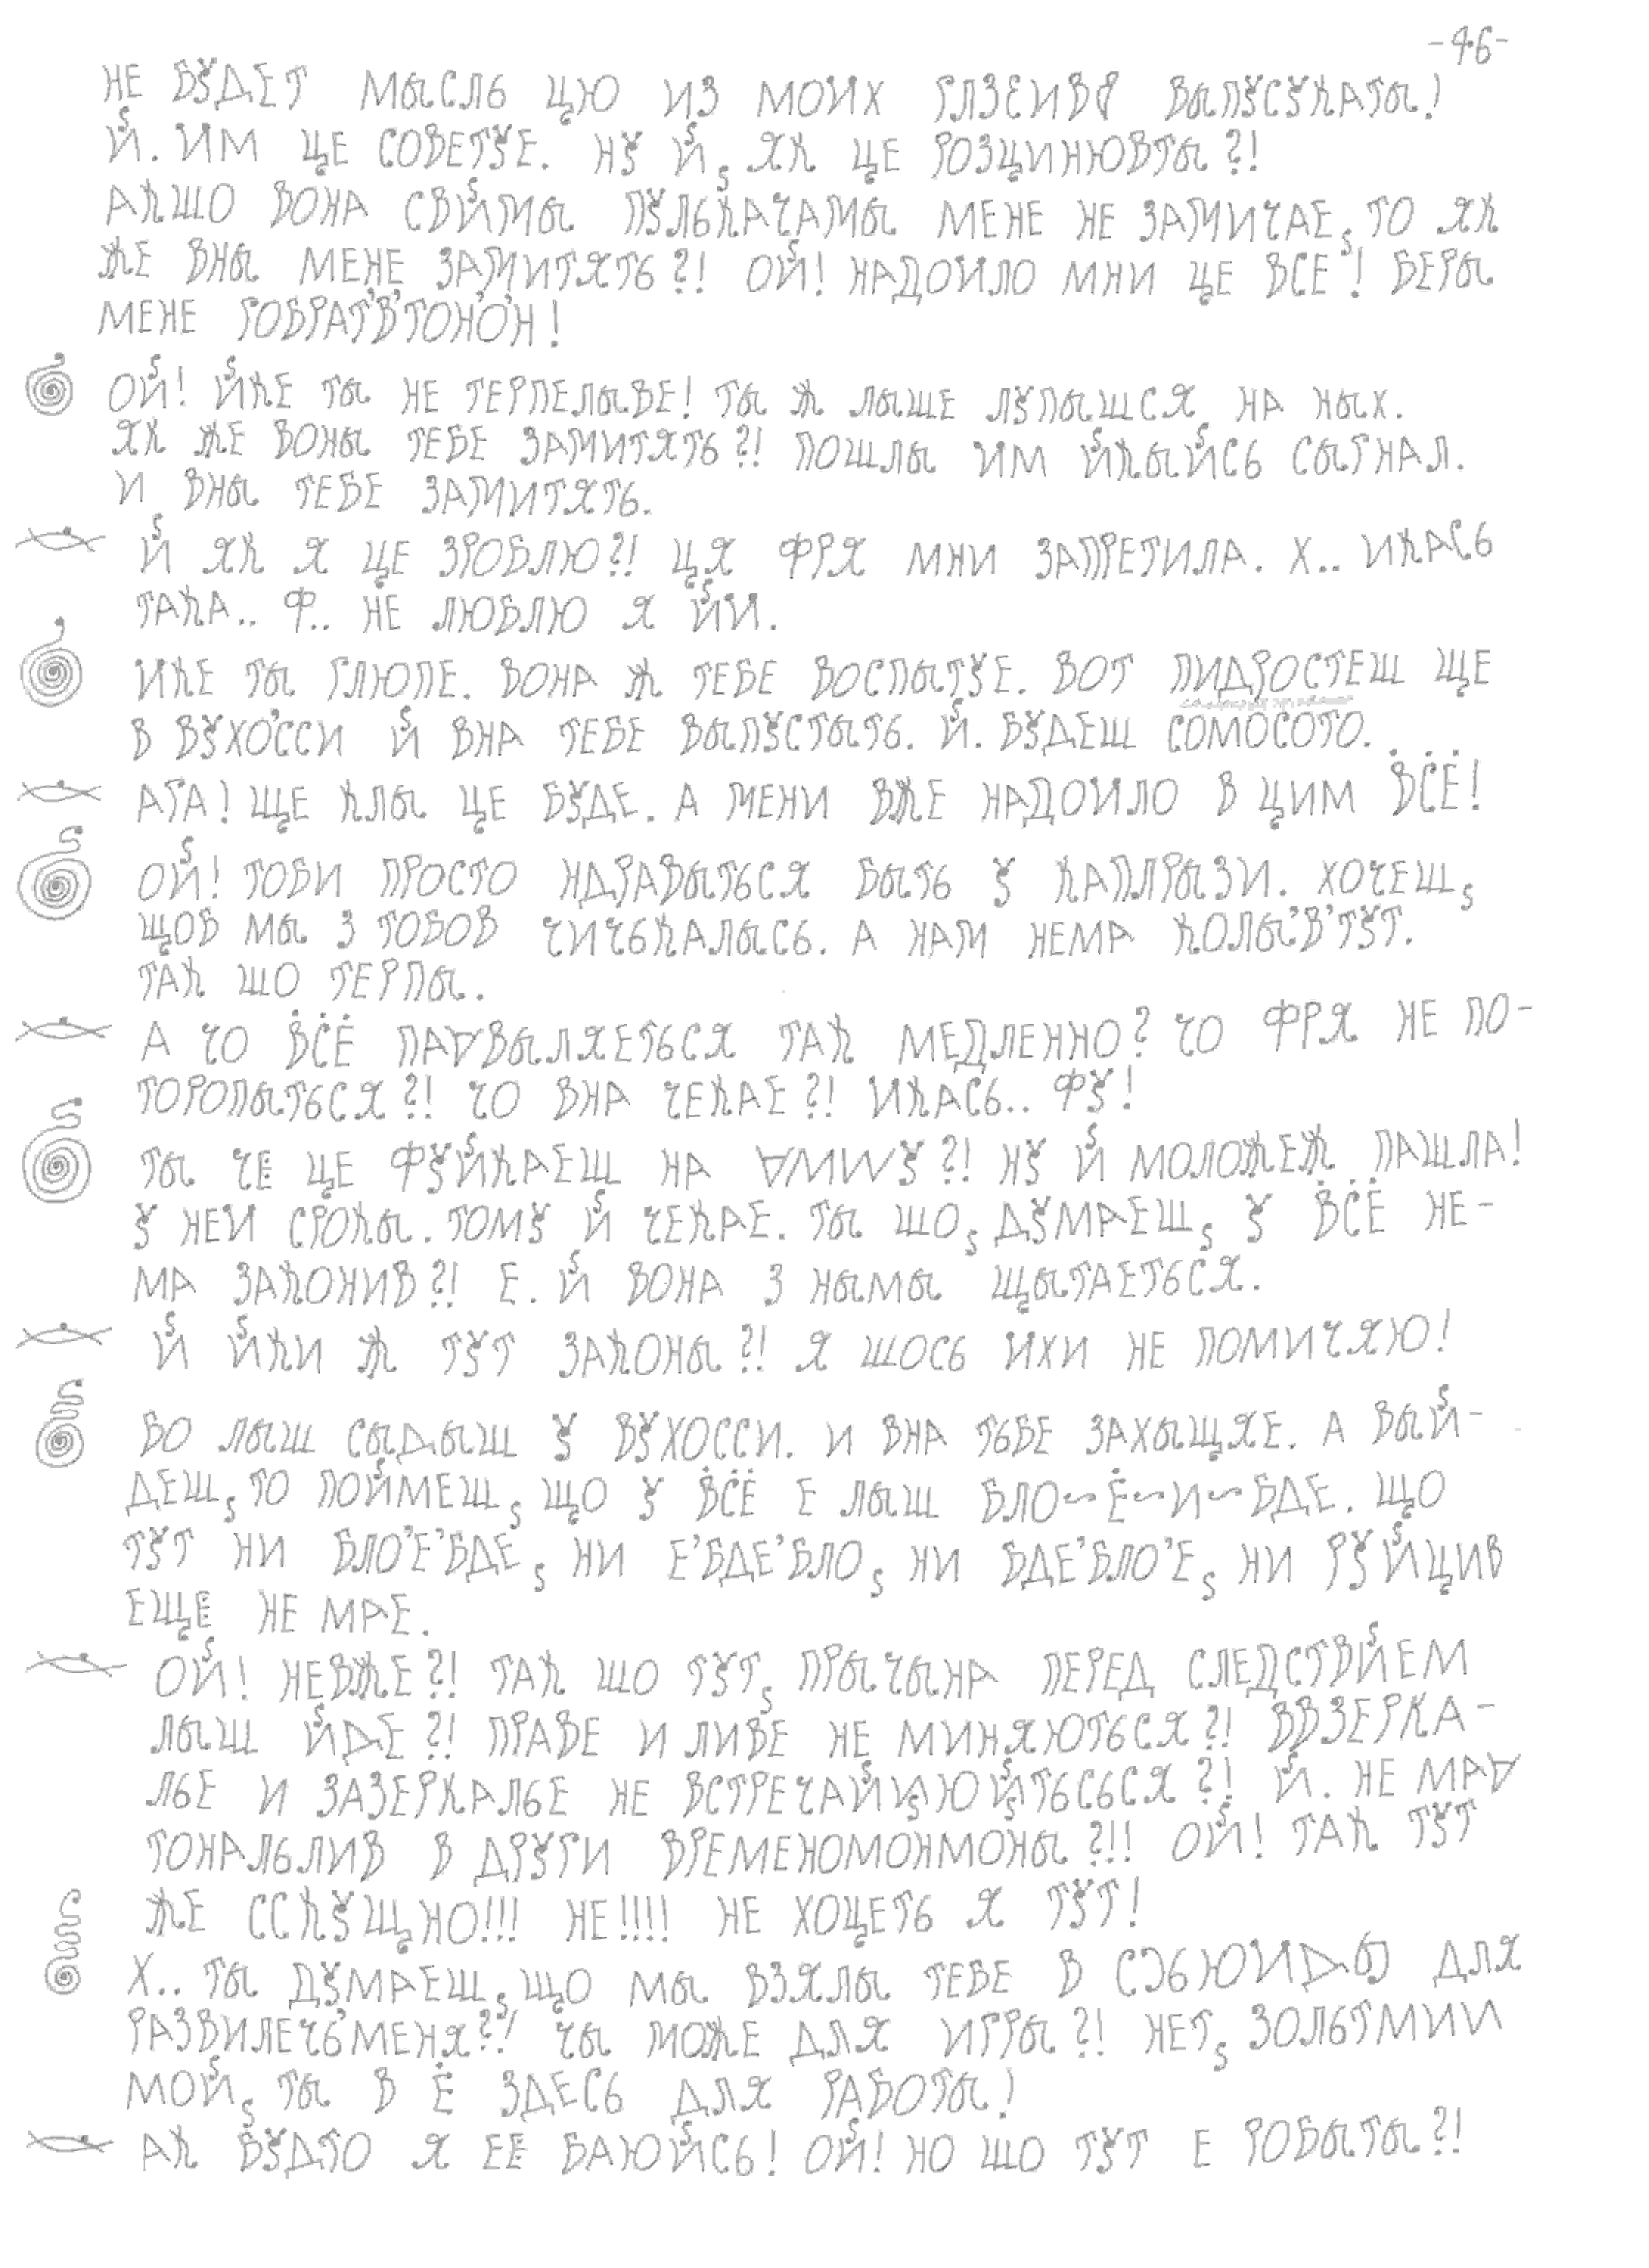 -46-
НЕ БУДЕТ МЫСЛЬ ЦЮ ИЗ МОИХ ВЫПУСУКАТЫ!
Й. ИМ ЦЕ СОВЕТУЕ. НУ Й, ЯК ЦЕ РОЗЦИНЮВТЫ?!
АКШО ВОНА СВЙМЫ ПУЛЬКАЧАМЫ МЕНЕ НЕ ЗАМИЧАЕ, ТО ЯК
ЖЕ ВНЫ МЕНЕ ЗАМИТЯТЬ?! ОЙ! НАДОИЛО МНИ ЦЕ ВСЕ! БЕРЫ
МЕНЕ ГОБРАТ'В'ТОН'О'Н!
ОЙ! ЙКЕ ТЫ НЕ ТЕРПЕЛЫВЕ! ТЫ Ж ЛЫШЕ ЛУПЫШСЯ НА НЫХ.
ЯК ЖЕ ВОНЫ ТЕБЕ ЗАМИТЯТЬ?! ПОШЛЫ ИМ ЙКЫЙСЬ СЫГНАЛ.
И ВНЫ ТЕБЕ ЗАМИТЯТЬ.
Й ЯК Я ЦЕ ЗРОБЛЮ?! ЦЯ ФРЯ МНИ ЗАПРЕТИЛА. Х.. ИКАСЬ
ТАКА.. Ф.. НЕ ЛЮБЛЮ Я ЙИ.
ИКЕ ТЫ ГЛЮПЕ. ВОНА Ж ТЕБЕ ВОСПЫТУЕ. ВОТ ПИДРОСТЕШ ЩЕ
В ВУХО'ССИ Й ВНА ТЕБЕ ВЫПУСТЫТЬ. Й. БУДЕШ СОМОСОТО.
АГА! ЩЕ КЛЫ ЦЕ БУДЕ. А МЕНИ ВЖЕ НАДОИЛО В ЦИМ ВСЁ!
ОЙ! ТОБИ ПРОСТО НДРАВЫТЬСЯ БЫТЬ У КАПЛРЫЗИ. ХОЧЕШ,
ЩОБ МЫ З ТОБОВ ЧИЧЬКАЛЫСЬ. А НАМ НЕМА КОЛЫ'В'ТУТ.
ТАК ШО ТЕРПЫ.
А ЧО ВСЁ ПА∀ВЫЛЯЕТЬСЯ ТАК МЕДЛЕННО? ЧО ФРЯ НЕ ПО-
ТОРОПЫТЬСЯ?! ЧО ВНА ЧЕКАЕ?! ИКАСЬ.. ФУ!
ТЫ ЧЕ ЦЕ ФУЙКАЕШ НА ∀МШУ?! НУ Й МОЛОЖЕЖ ПАШЛА!
У НЕИ СРОКЫ. ТОМУ Й ЧЕКАЕ. ТЫ ШО, ДУМАЕШ, У ВСЁ НЕ-
МА ЗАКОНИВ?! Е. Й ВОНА З НЫМЫ ЩЫТАЕТЬСЯ.
Й ЙКИ Ж ТУТ ЗАКОНЫ?! Я ШОСЬ ИХИ НЕ ПОМИЧЯЮ!
БО ЛЫШ СЫДЫШ У ВУХОССИ. И ВНА ТЬБЕ ЗАХЫЩЯЕ. А ВЫЙ-
ДЕШ, ТО ПОЙМЕШ, ЩО У ВСЁ Е ЛЫШ БЛО~Ё~И~БДЕ. ЩО
ТУТ НИ БЛО'Е'БДЕ, НИ Е'БДЕ'БЛО, НИ БДЕ'БЛО'Е, НИ РУЙЦИВ
ЕЩЕ НЕ МАЕ.
ОЙ! НЕВЖЕ?! ТАК ШО ТУТ, ПРЫЧЫНА ПЕРЕД СЛЕДСТВЙЕМ
ЛЫШ ЙДЕ?! ПРАВЕ И ЛИВЕ НЕ МИНЯЮТЬСЯ?! ВВЗЕРКА-
ЛЬЕ И ЗАЗЕРКАЛЬЕ НЕ ВСТРЕЧАЙЙЮЙТЬСЬСЯ?! Й. НЕ МА∀
ТОНАЛЬЛИВ В ДРУГИ ВРЕМЕНОМОНМОНЫ?!! ОЙ! ТАК ТУТ
ЖЕ ССКУЩНО!!! НЕ!!!! НЕ ХОЦЕТЬ Я ТУТ!
Х.. ТЫ ДУМАЕШ, ЩО МЫ ВЗЯЛЫ ТЕБЕ В ДЛЯ
РАЗВИЛЕЧЬ'МЕНЯ?! ЧЫ МОЖЕ ДЛЯ ИГРЫ?! НЕТ, ЗОЛЬТМИИ
МОЙ, ТЫ В Ё ЗДЕСЬ ДЛЯ РАБОТЫ!
АК БУДТО Я ЕЕ БАЮЙСЬ! ОЙ! НО ШО ТУТ Е РОБЫТЫ?!